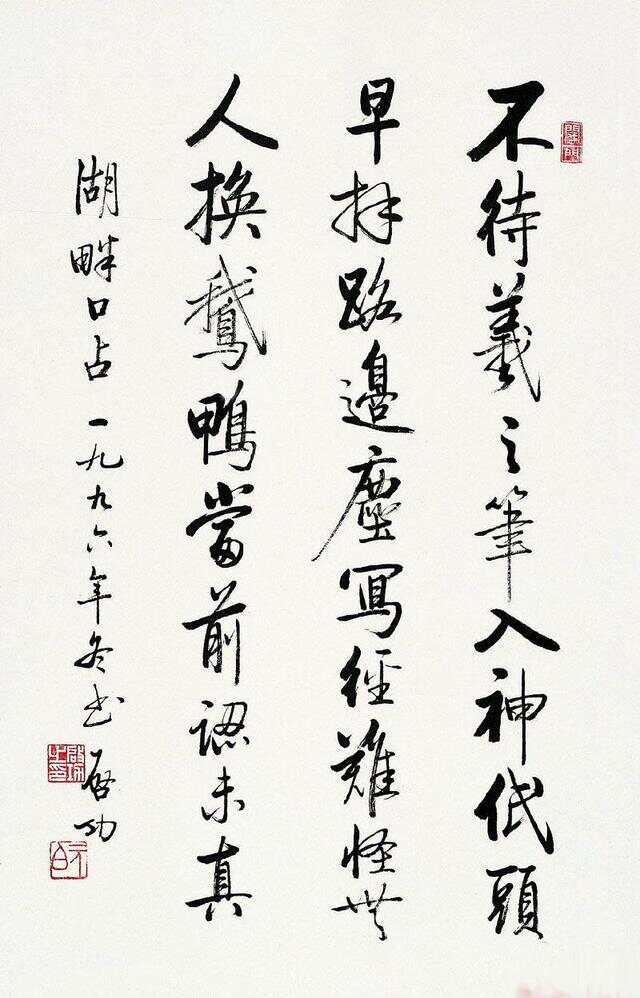 不待羲之筆入神低頭
早拜路邊塵寫經難怪無
人換鵝鴨當前認未真
湖畔口占一九九六年冬書 啓功
啓功之印
元白